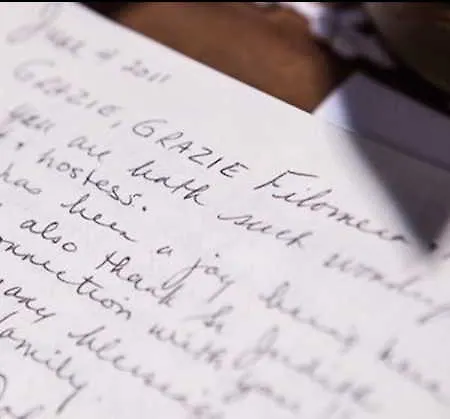 June 4 2011
GRAZIE, GRAZIE Filomena
you are both such wonderful
& hostess.
has been a joy being
also thank
connection with you
many blessings
family.